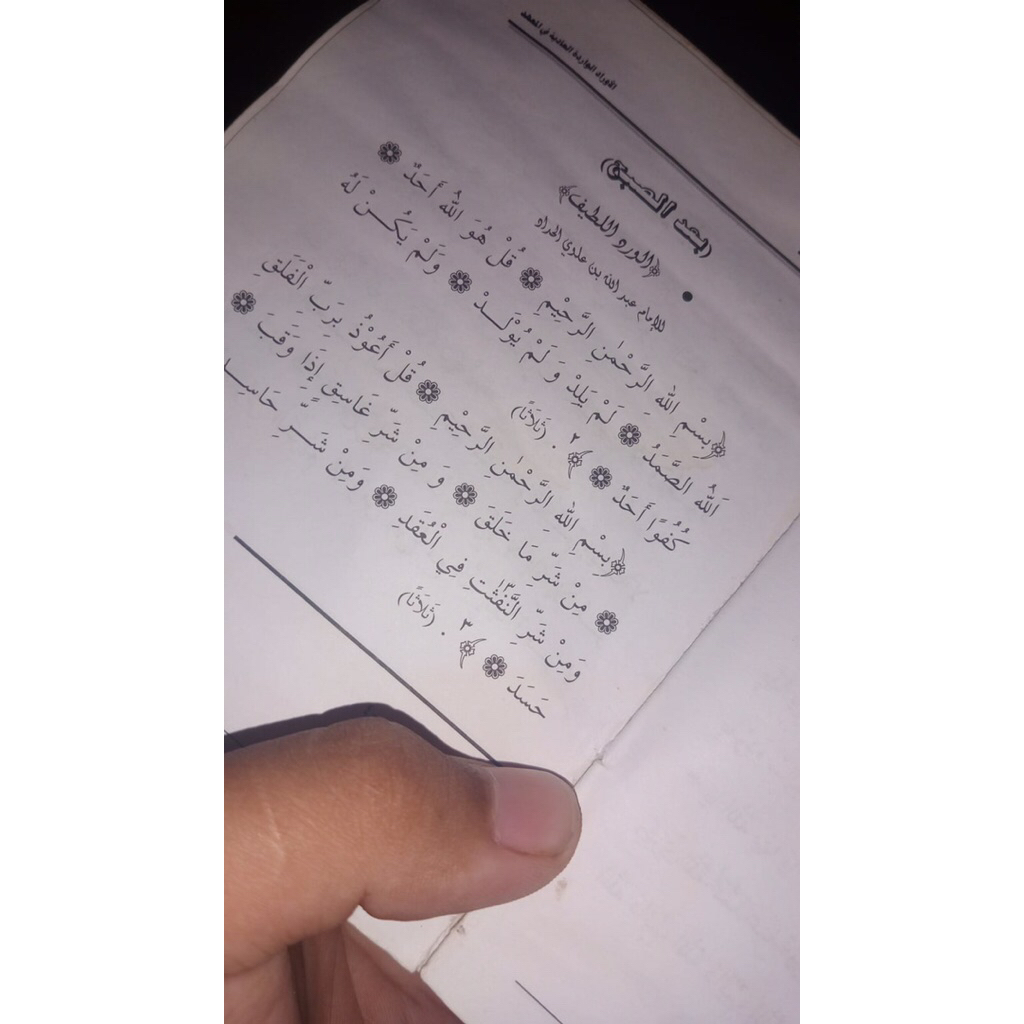 الأوراد الواردة العادية في المعهد
(بعد الصبح)
﴿الورد اللطيف﴾
للإمام عبد الله بن علوي الحداد
﴿بِسْمِ اللهِ الرَّحْمٰنِ الرَّحِيْمِ ۞ قُلْ هُوَ اللهُ أَحَدٌ ۞
اَللهُ الصَّمَدُ ۞ لَمْ يَلِدْ وَ لَمْ يُوْلَـدْ ۞ وَلَمْ يَكُـنْ لَهُ
كُفُوًا أَحَدٌ ۞ ﴾ ٢ . (ثَلَاثًا)
﴿بِسْمِ اللهِ الرَّحْمٰنِ الرَّحِيْمِ ۞ قُلْ أَعُوْذُ بِرَبِّ الْفَلَقِ
۞ مِنْ شَرِّ مَا خَلَقَ ۞ وَ مِنْ شَرِّ غَاسِقٍ إِذَا وَقَبَ ۞
وَمِنْ شَرِّ النَّفّٰثٰتِ فِي الْعُقَدِ ۞ وَمِنْ شَـرِّ حَاسِـ
حَسَدَ ۞ ﴾ ٣ . (ثَلَاثًا)